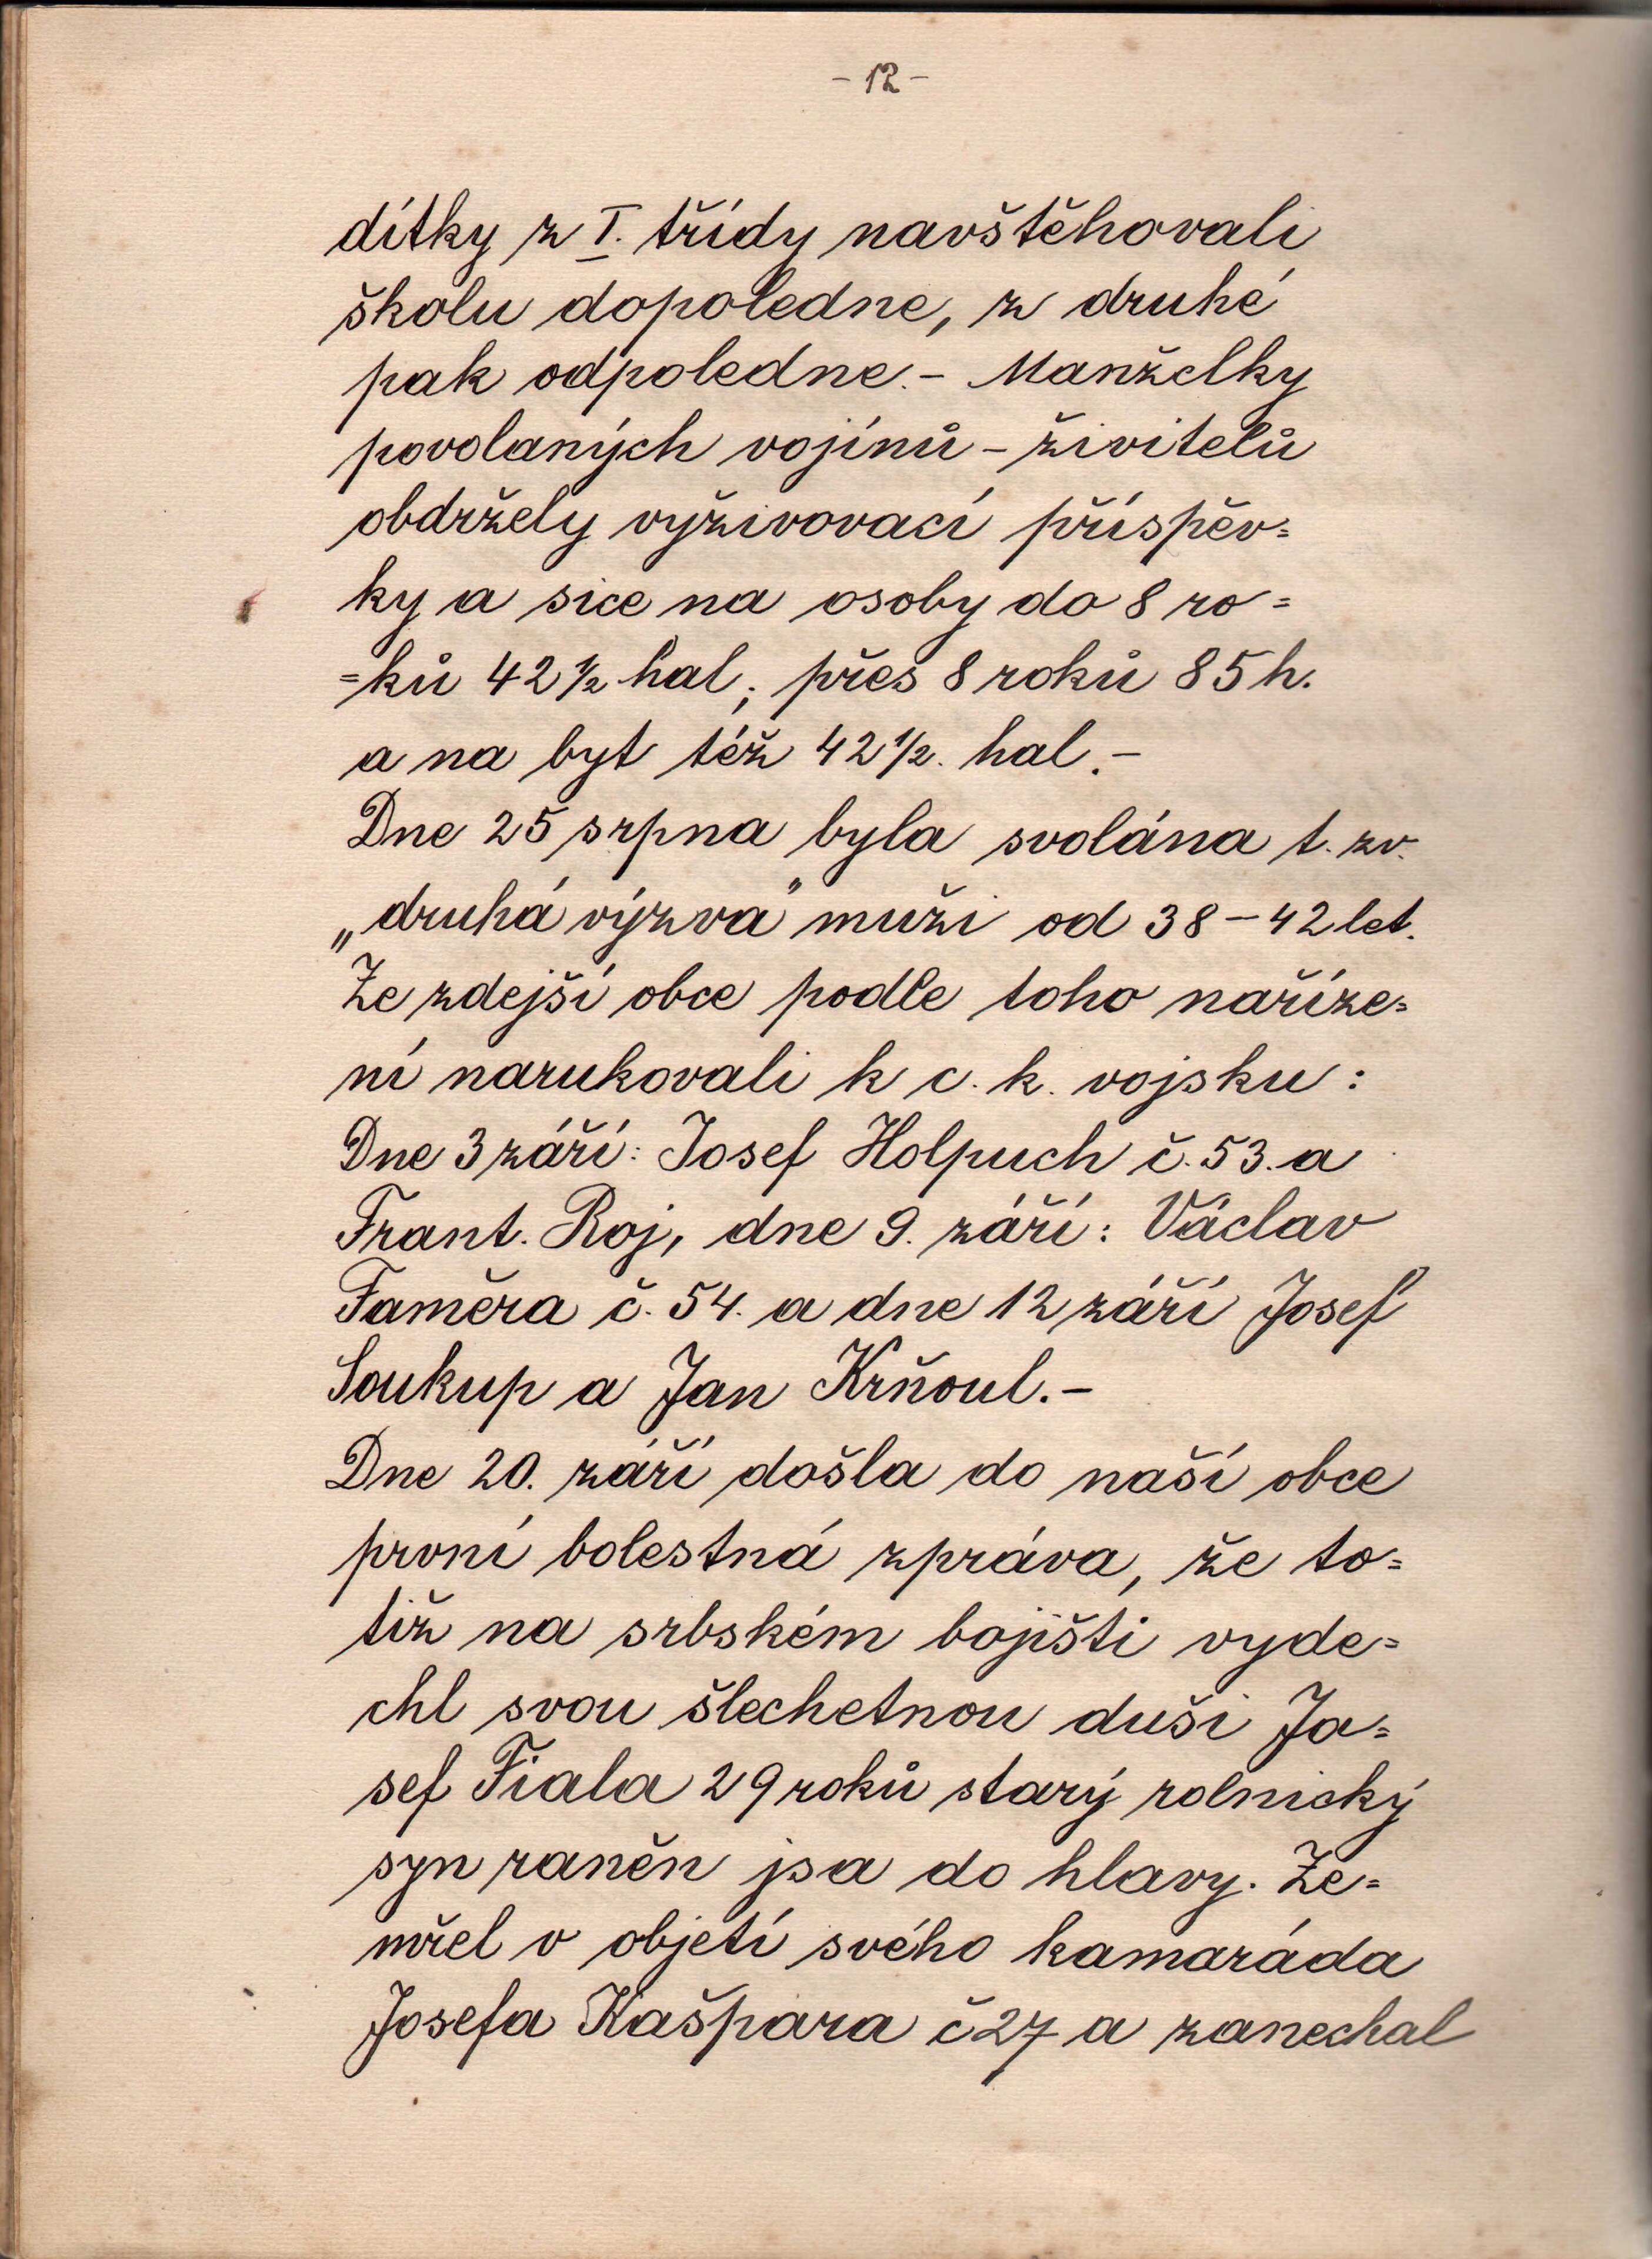 - 12 -
dítky z I. třídy navštěhovali
školu dopoledne, z druhé
pak odpoledne.- Manželky
povolaných vojínů - živitelů
obdržely vyživovací příspěv=
ky a sice na osoby do 8 ro=
=ků 42 ½ hal; přes 8 roků 85 h.
a na byt též 42 ½. hal.-
Dne 25 srpna byla svolána t. zv.
„druhá výzva" muži od 38 - 42 let.
Ze zdejší obce podle toho naříze=
ní narukovali k c. k. vojsku :
Dne 3 září: Josef Holpuch č. 53. a
Frant. Roj, dne 9. září: Václav
Faměra č. 54. a dne 12 září Josef
Soukup a Jan Krňoul.-
Dne 20. září došla do naší obce
první bolestná zpráva, že to=
tiž na srbském bojišti vyde=
chl svou šlechetnou duši Jo=
sef Fiala 29 roků starý rolnický
syn raněn jsa do hlavy. Ze=
mřel v objetí svého kamaráda
Josefa Kašpara č 27 a zanechal